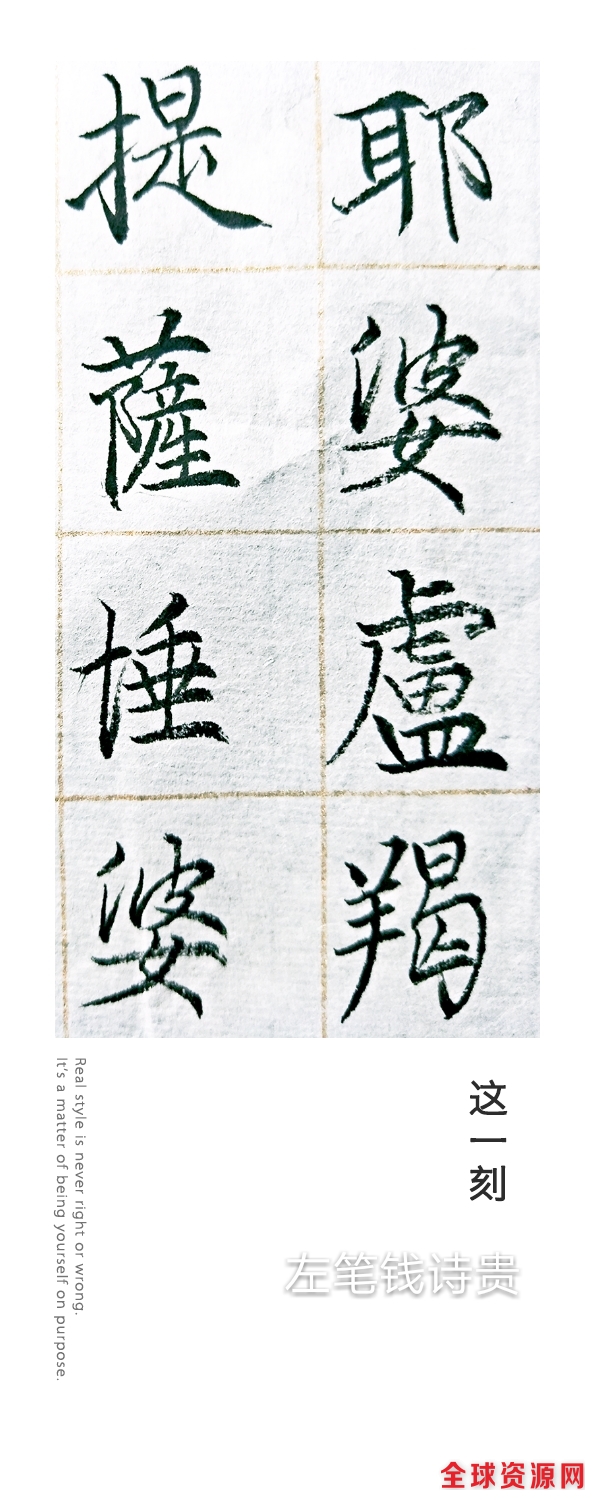 耶婆盧羯
提薩埵婆
这一刻
左笔钱诗贵
Real style is never right or wrong.
It's a matter of being yourself on purpose.
全球资源网